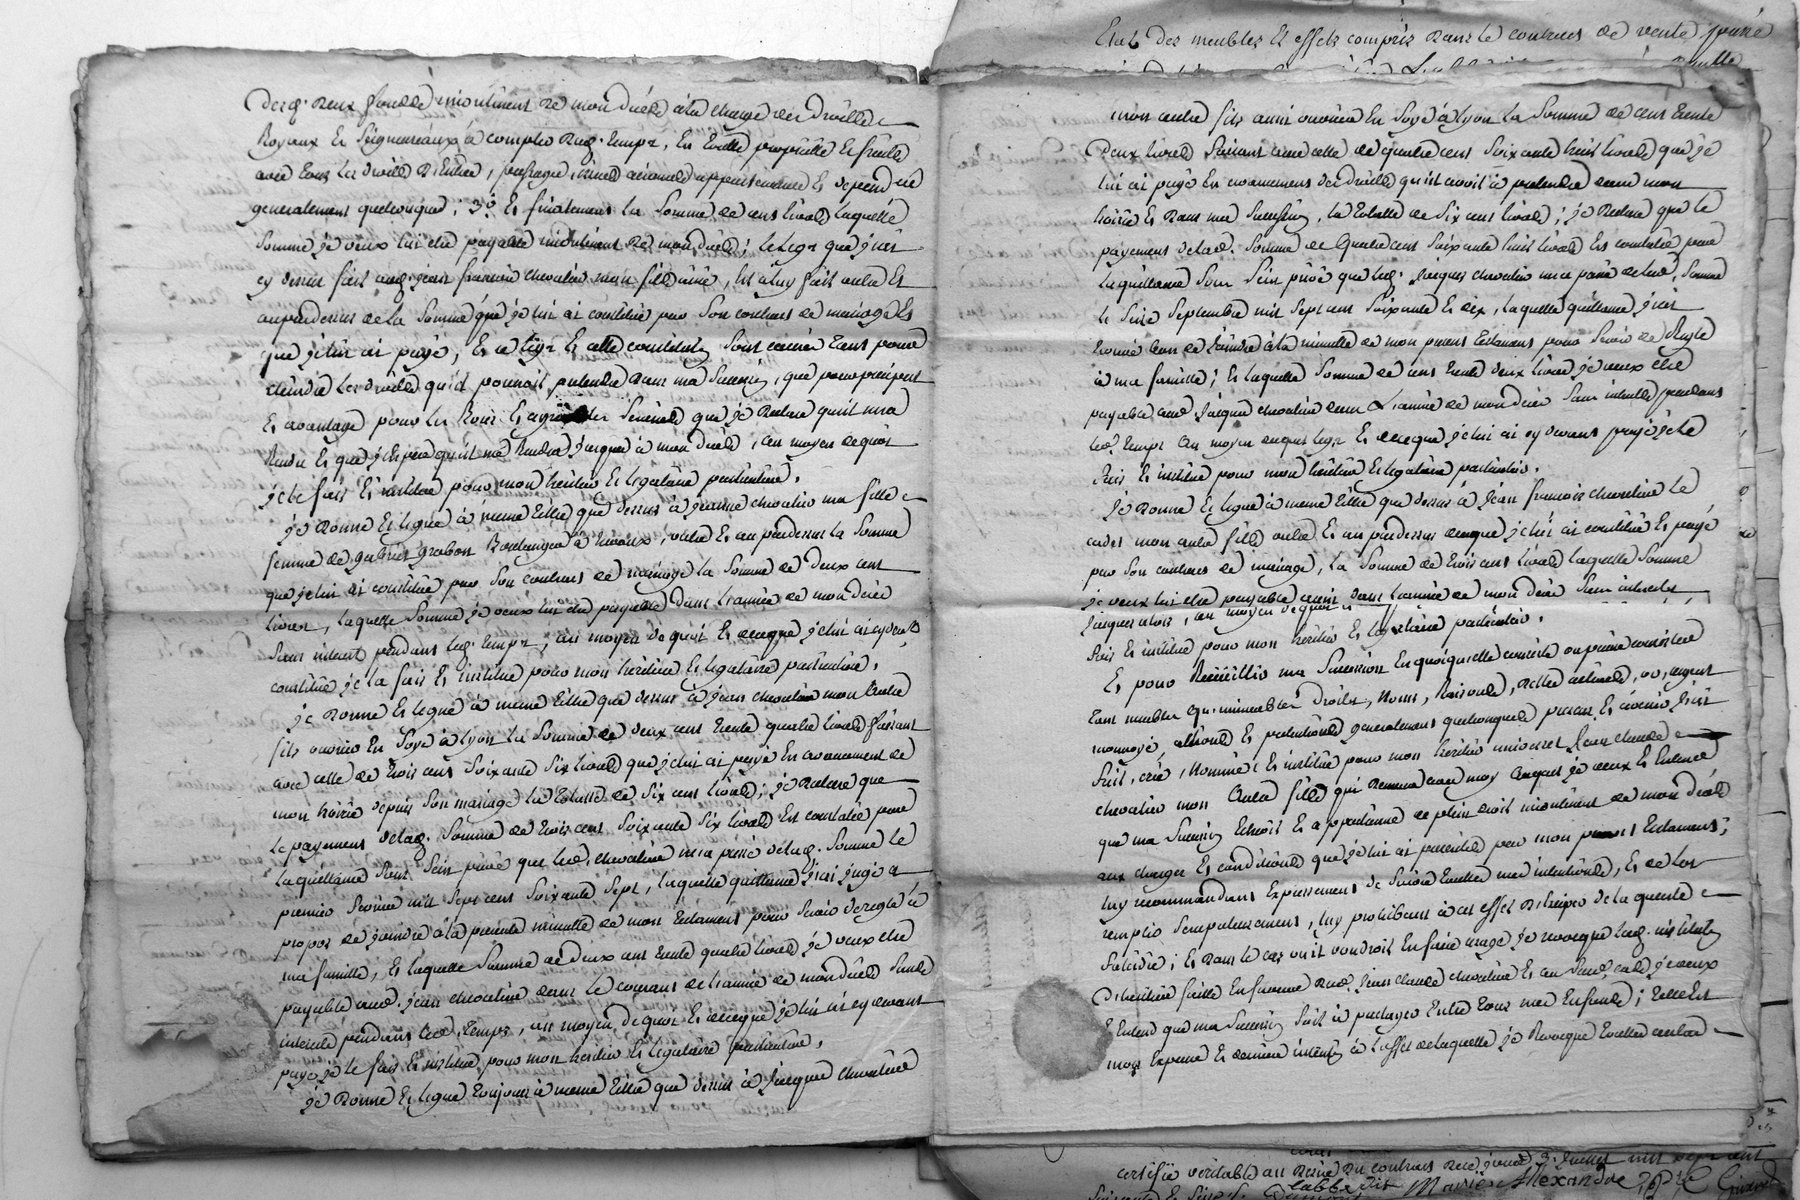 Desq. deux fonds incontinent de mon deceds à la charge des droits
Royaux et seigneuriaux à compter dud. temps, en toutte proprieté et fruits
avec tous les droits d'entrée, passage, appartenances et dependces
generalement quelconques; 3º et finalement la somme de cens livres laquelle
somme je veux lui etre payable incontinent de mon deceds; le legs que j'ais
cy dessus fait aud. jean françois chevalier mon fils ainé, est à luy fait outre et
aupardessus de la somme que je lui ai constitué par son contract de mariage et
que je lui ai payé, et ce legs et cette constitution sont tant pour
les droits qu'il pourroit pretendre dans ma succession, que pour preciput
et avantage pour les bons et agréables services que je declare qu'il m'a
rendu et que j'espere qu'il me rendra jusques à mon deceds, au moyen de quoi
je le fais et institue pour mon heritier et legataire particulier.
je donne et legue à meme titre que dessus à jeanne chevalier ma fille
femme de gabriel grabon Boulanger à, outre et au pardessus la somme
que je lui ai constitué par son contract de mariage la somme de deux cent
livres, laquelle somme je veux lui etre payable dans l'année de mon deceds
sans interet pendant led. temps, au moyen de quoi et de ce que je lui ai cydevt
constitué je la fais et institue pour mon heritiere et legataire particuliere.
je donne et legue à meme titre que dessus à jean chevalier mon autre
fils ouvrier en soye à lyon la somme de deux cens trente quatre livres faisant
avec celle de trois cens soixante six livres que je lui ai payé en avancement de
mon hoirie depuis son mariage la totalité de six cens livres; je declare que
le payement de lad. somme de trois cens soixante six livres est constatée par
la quittance sous sein privé que led. chevalier m'a passé de lad. somme le
premier mil sept cens soixante sept, laquelle quittance j'ai jugé a
propos de joindre à la presente minutte de mon testament pour servir de regle à
ma famille, et laquelle somme de deux cens trente quatre livres je veux etre
payable aud. jean chevalier dans le courant de l'année de mon deceds sans
interets pendant led. temps, au moyen de quoi et de ce que je lui ai cy devant
payé je le fais et institue pour mon heritier et legataire particulier.
je donne et legue toujours à meme titre que dessus à jacques chevalier
Etat des meubles et effets compris dans le contract de vente
mon autre fils aussi ouvrier en soye à lyon la somme de cent trente
deux livres faisant avec celle de quatre cens soixante huit livres que je
lui ai payé en avancement des droits qu'il avoit à pretendre dans mon
hoirie et dans ma succession, la totalité de six cens livres; je declare que le
payement de lad. somme de quatre cens soixante huit livres est constatée par
la quittance sous sein privé que led. jacques chevalier m'a passé de lad. somme
le seize septembre mil sept cens soixante et dix, laquelle quittance j'ais
trouvé bon de joindre à la minutte de mon present testament pour servir de regle
à ma famille; et laquelle somme de cens trente deux livres je veux etre
payable aud. jacques chevalier dans l'année de mon deceds sans interets pendans
led. temps au moyen duquel legs et de ce que je lui ai cy devans payé je le
fais et institue pour mon heritier et legataire particulier.
je donne et legue à meme titre que dessus à jean françois chevalier le
cadet mon autre fils outre et au pardessus de ce que je lui ai constitué et payé
par son contract de mariage, la somme de trois cens livres laquelle somme
je veux lui etre payable aussi dans l'année de mon deceds sans interets
jusques alors, au moyen de quoi je le
fais et institue pour mon heritier et legataire particulier.
Et pour recueillir ma succession en quoi qu'elle consiste ou puisse consister
tant meubles qu'immeubles droits, noms, raisons, dettes actives, or, argent
monnoyé, actions et pretentions generalement quelconques presens et à venir j'ais
fait, créé, nommé et institué pour mon heritier universel jean claude
chevalier mon autre fils qui demeure avec moy auquel je veux et entend
que ma succession echoit et appartienne de plein droit incontinent de mon deceds
aux charges et conditions que je lui ai prescrites par mon present testament;
luy recommandant expressement de suivre touttes mes intentions, et de les
remplir scrupuleusement, luy prohibant à cet effet distraction de la quarte
falcidie; et dans le cas ou il voudroit en faire usage je revoque lad. institution
d'heritier faitte en faveur dud. jean claude chevalier et au susd. cas, je veux
et entend que ma succession soit à partager entre tous mes enfants; telle est
mon expresse et derniere intention à l'effet de laquelle je revoque toutte autre
certifié veritable au desir du contract recu 3 juillet mil sept cent
Marie Alexandre